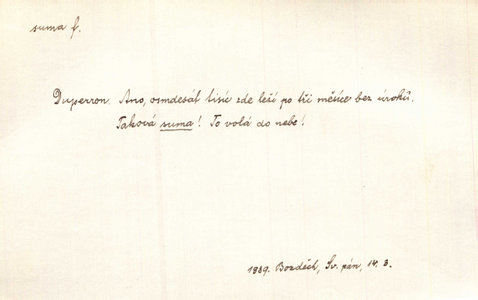 suma f.
Duperron. Ano, osmdesát tisíc zde leží po tři měsíce bez úroků.
Taková suma! To volá do nebe!
1889. Bozděch, Sv. pán, 14. 3.